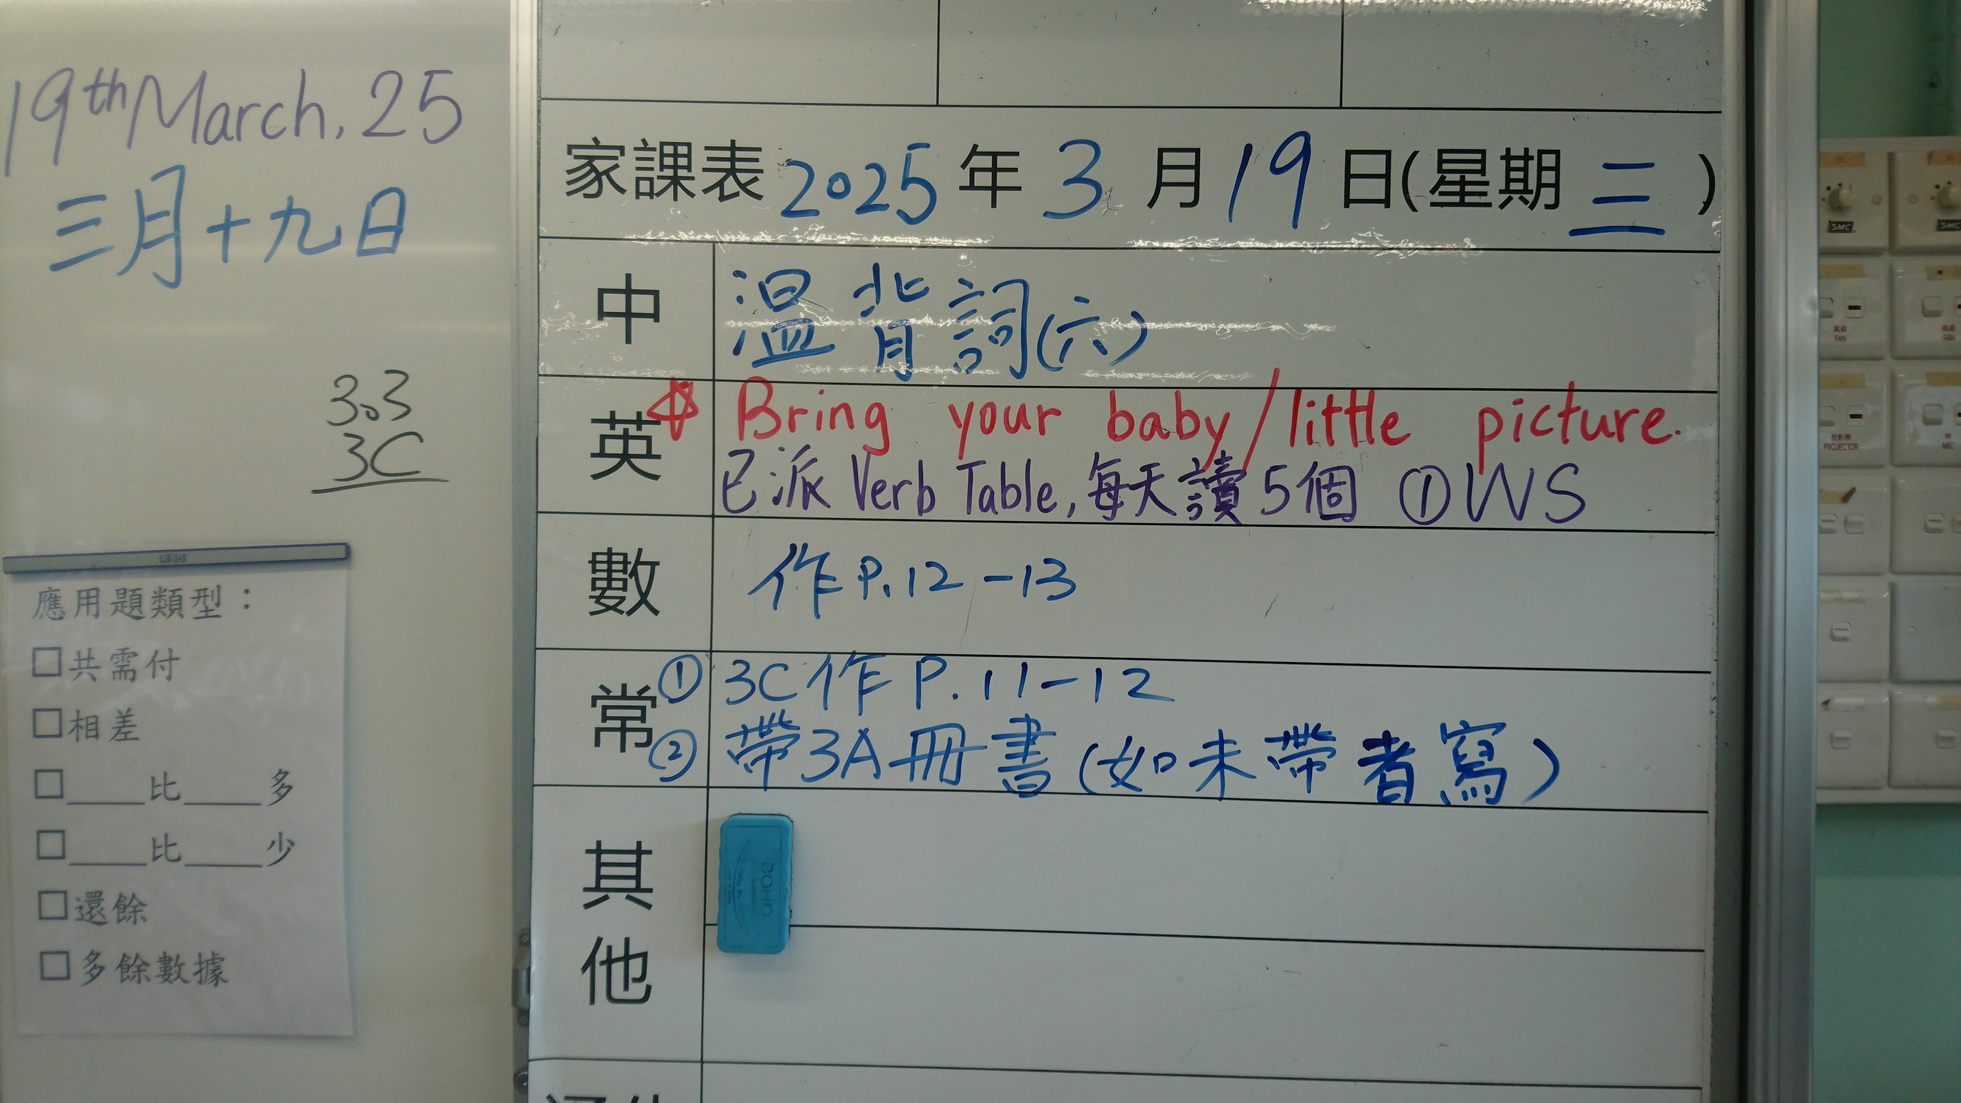 19th March, 25
三月十九日
3.3
3C
應用題類型：
□共需付
□相差
□____比____多
□____比____少
□還餘
□多餘數據
家課表 2025 年 3 月 19 日(星期 三 )
中 溫背詞(六)
英 Bring your baby/little picture.
已派 Verb Table, 每天讀5個 ①WS
數 作P.12-13
常 ① 3C作P.11-12
② 帶3A冊書(如未帶者寫)
其他
BOHO
SMC
SMC
風扇
FAN
風扇
FAN
投影機
PROJECTOR
MIC